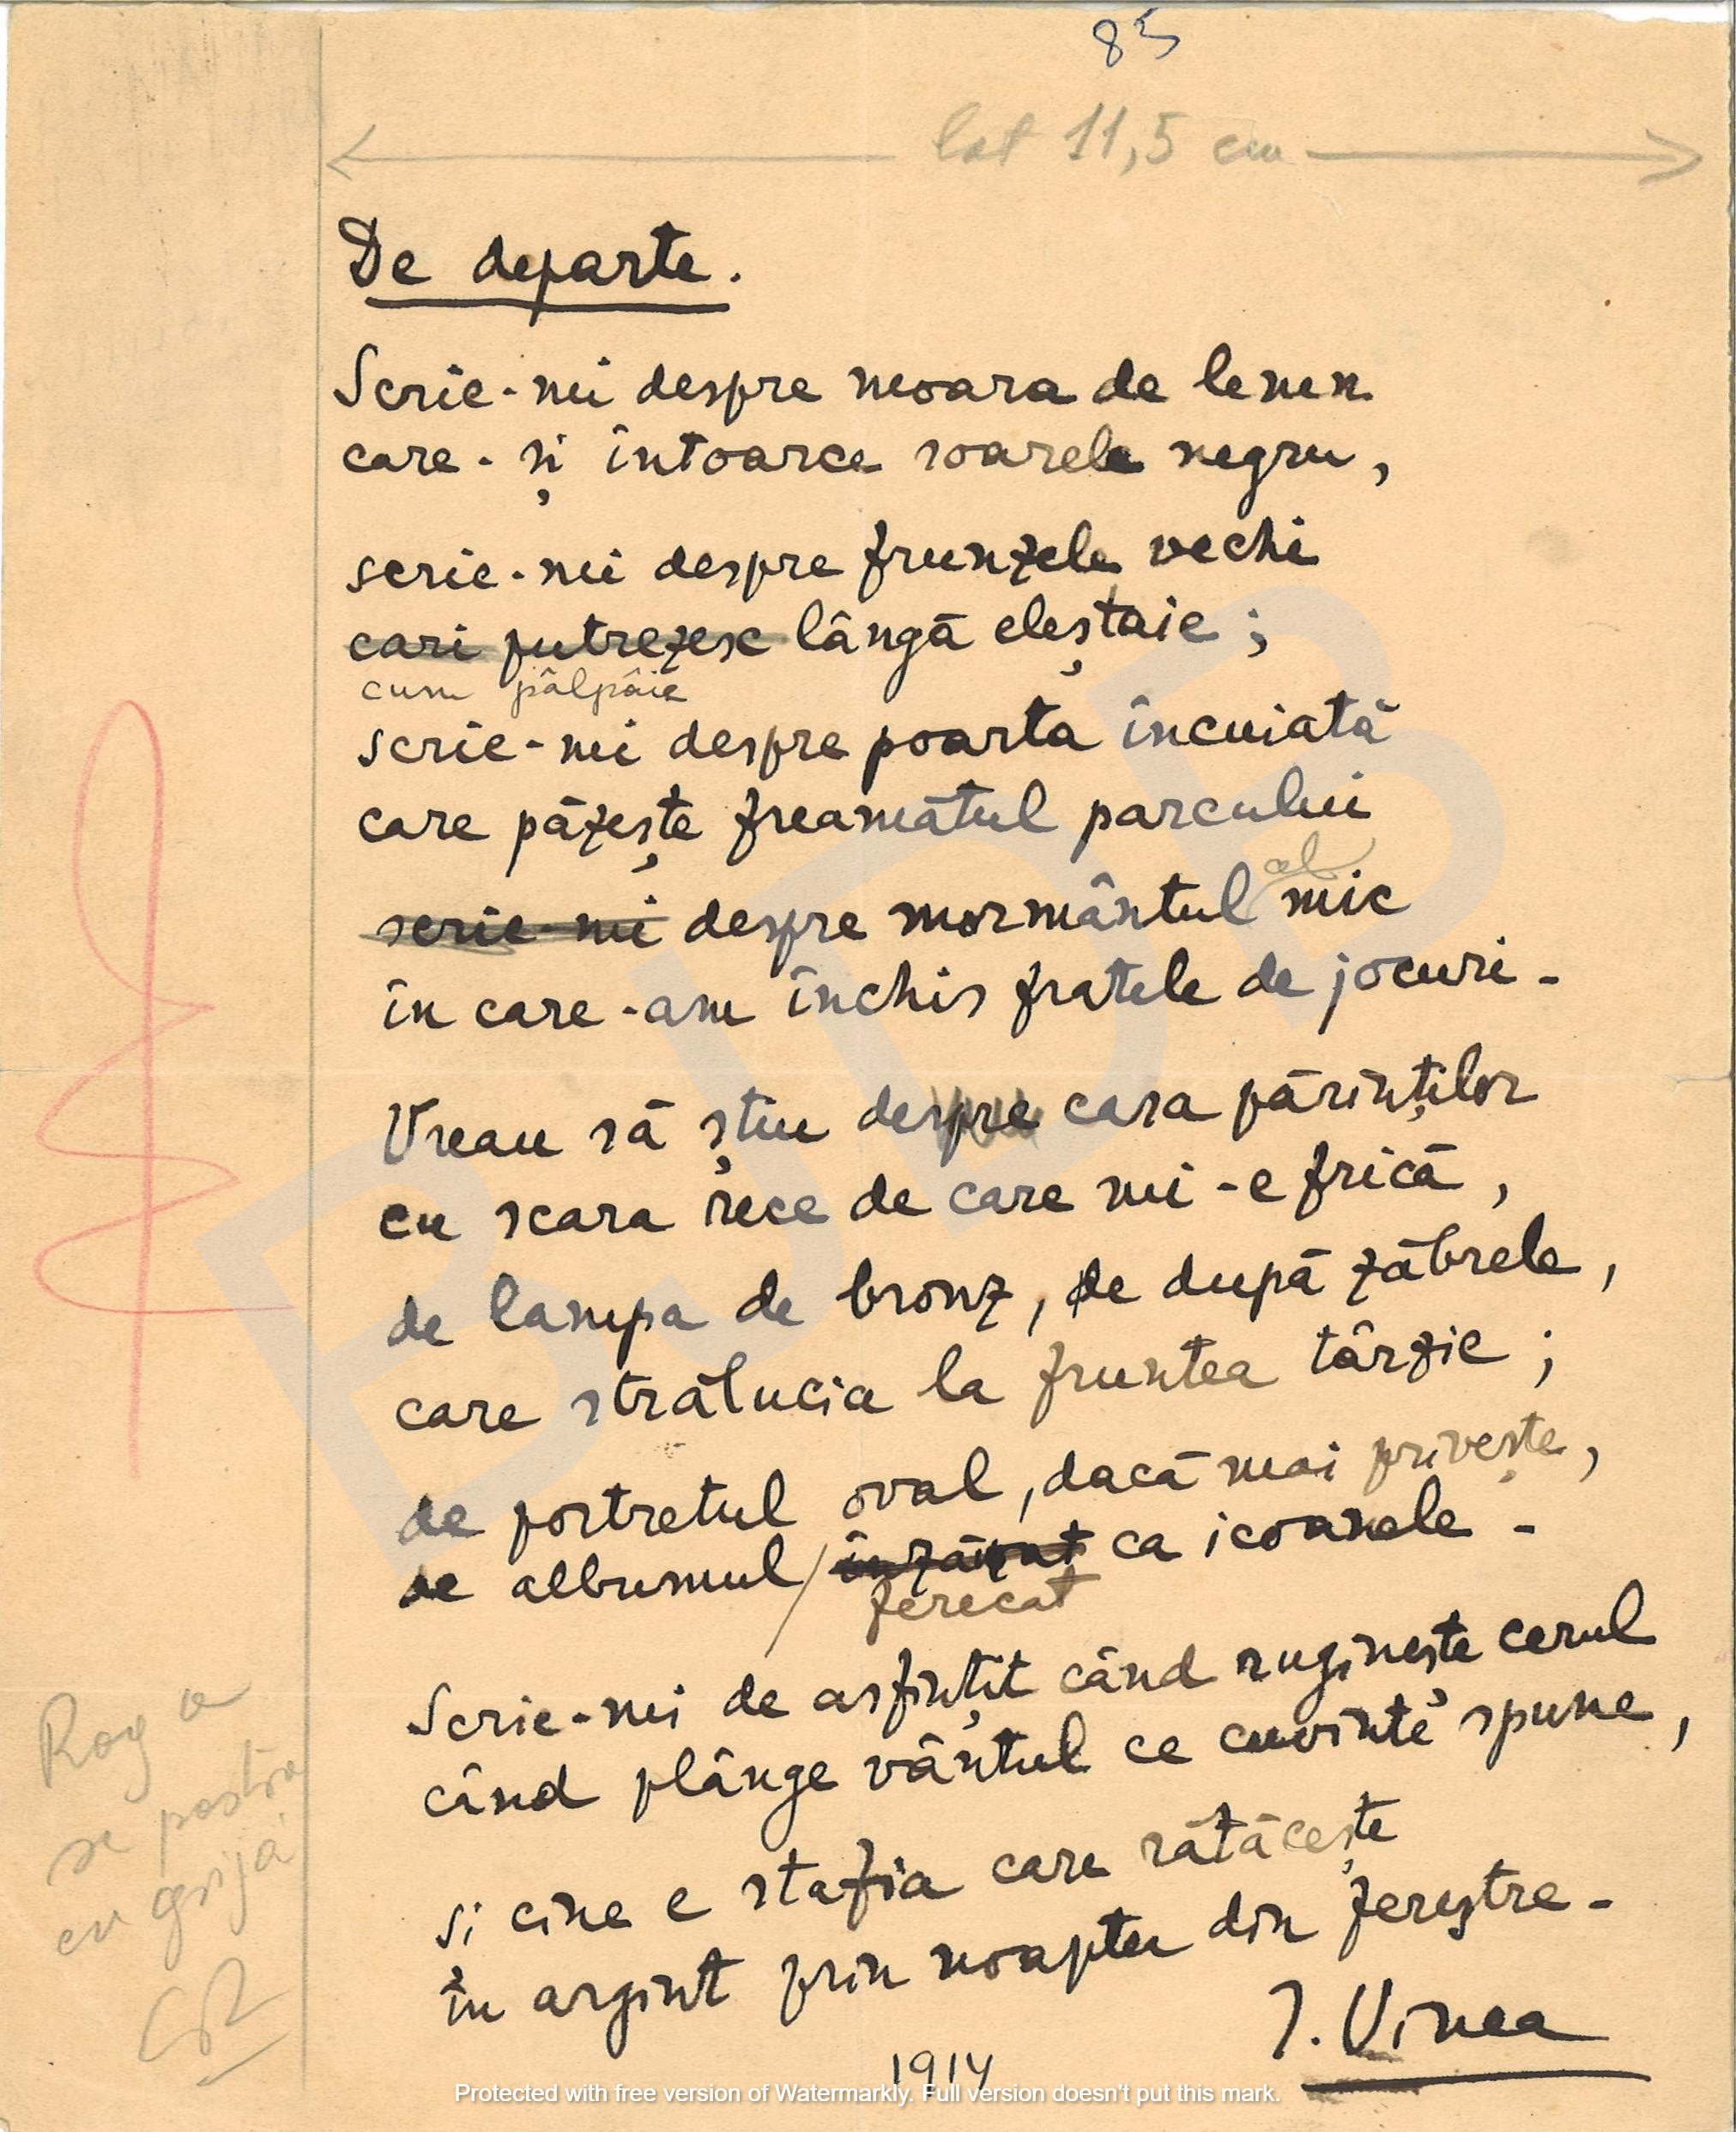 85
lat 11,5 cm
De departe.
Scrie-mi despre moara de lemn
care-și întoarce soarele negru,
scrie-mi despre frunzele vechi
cari putrezesc lângă eleștaie;
cum pâlpâie
scrie-mi despre poarta încuiată
care păzește freamătul parcului
cel
scrie-mi despre mormântul mic
în care-am închis fratele de jocuri -
Vreau să știu despre casa părinților
cu scara rece de care mi-e frică,
de lampa de bronz, de după zăbrele,
care strălucia la fruntea târzie;
de portretul oval, dacă mai privește,
de albumul înzăuat ca icoanele -
ferecat
Scrie-mi de asfințit când ruginește cerul
când plânge vântul ce cuvinte spune,
și cine e stafia care rătăcește
în argint prin noaptea din ferestre -
I. Vinea
1914
Rog a
se păstra
cu grijă
BJDB
Protected with free version of Watermarkly. Full version doesn't put this mark.